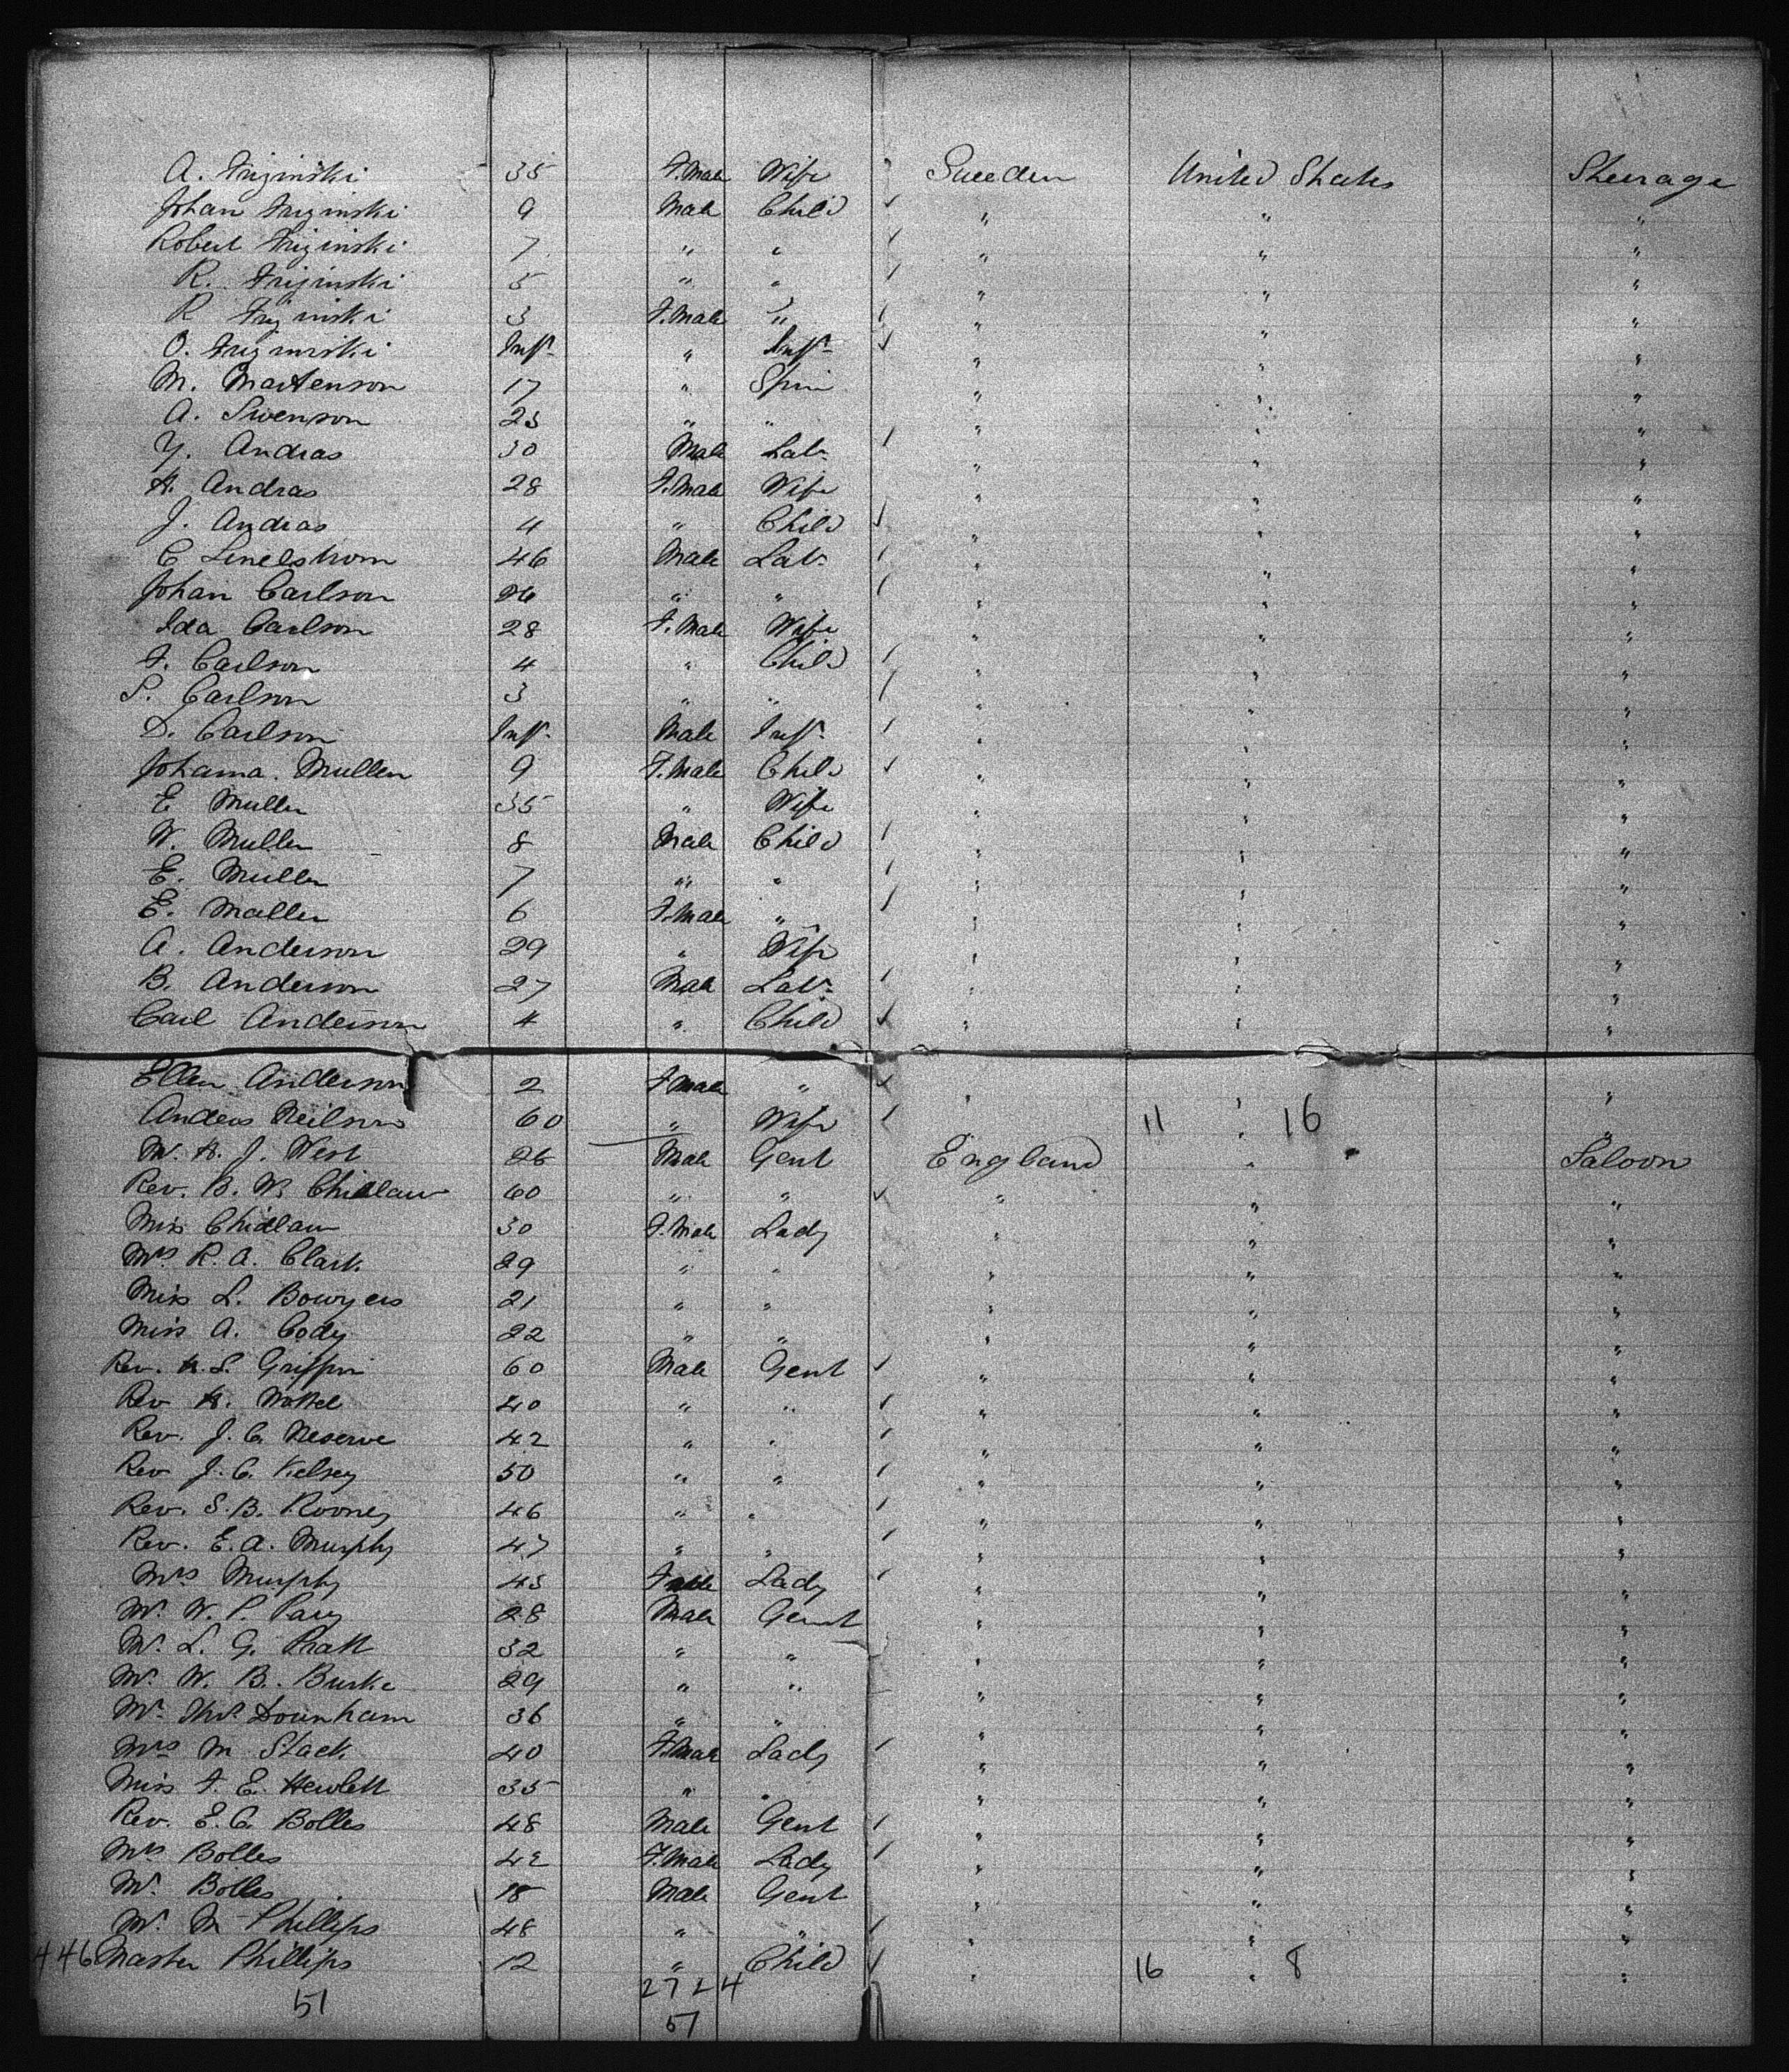 A. Frizinski 35 F.Male Wife Sweeden United States Steerage
Johan Frizinski 9 Male Child " " "
Robert Frizinski 7 " " " " "
R. Frizinski 5 " " " " "
R Frizinski 3 F.Male " " " "
O. Frizinski Inft. " Inft. " " "
M. Martenson 17 " Spin " " "
A. Swenson 23 " " " " "
Y. Andras 30 Male Labr. " " "
H. Andras 28 F.Male Wife " " "
J. Andras 4 " Child " " "
C Linelstrom 46 Male Labr. " " "
Johan Carlson 26 " " " " "
Ida Carlson 28 F.Male Wife " " "
F. Carlson 4 " Child " " "
S. Carlson 3 " " " " "
D. Carlson Inft. Male Inft. " " "
Johama. Mullen 9 F.Male Child " " "
E Muller 35 " Wife " " "
W. Muller 8 Male Child " " "
E. Muller 7 " " " " "
E. Maller 6 F.Male " " " "
A. Anderson 29 " Wife " " "
B. Anderson 27 Male Labr. " " "
Carl Anderson 4 " Child " " "
Ellen Anderson 2 F.Male " " " "
Anders Neilson 60 " Wife 11 " 16 "
Mr. H. J. West 26 Male Gent England " Saloon
Rev. B. W. Chidlaw 60 " " " " "
Miss Chidlaw 30 F.Male Lady " " "
Mrs R. A. Clark 29 " " " " "
Miss L. Bowyers 21 " " " " "
Miss A. Cody 22 " " " " "
Rev. H. S. Griffin 60 Male Gent " " "
Rev H. 40 " " " " "
Rev. J. C. Neserve 42 " " " " "
Rev J. C. Kelsey 50 " " " " "
Rev. S. B. Rooney 46 " " " " "
Rev. E. A. Murphy 47 " " " " "
Mrs Murphy 45 Lady " " "
Mr. W. P. Pary 28 Male Gent " " "
Mr. L. G. Pratt 32 " " " " "
Mr. W. B. Burke 29 " " " " "
Mr. Thos. Dounham 36 " " " " "
Mrs M Stack 40 F.Male Lady " " "
Miss F. E. Hewlett 35 " " " " "
Rev. E. C. Bolles 48 Male Gent " " "
Mrs Bolles 42 F.Male Lady " " "
Mr. Bolles 18 Male Gent " " "
Mr. M Phillips 48 " " " " "
446 Master Phillips 12 " Child " 16 " 8 "
51 27 24
51